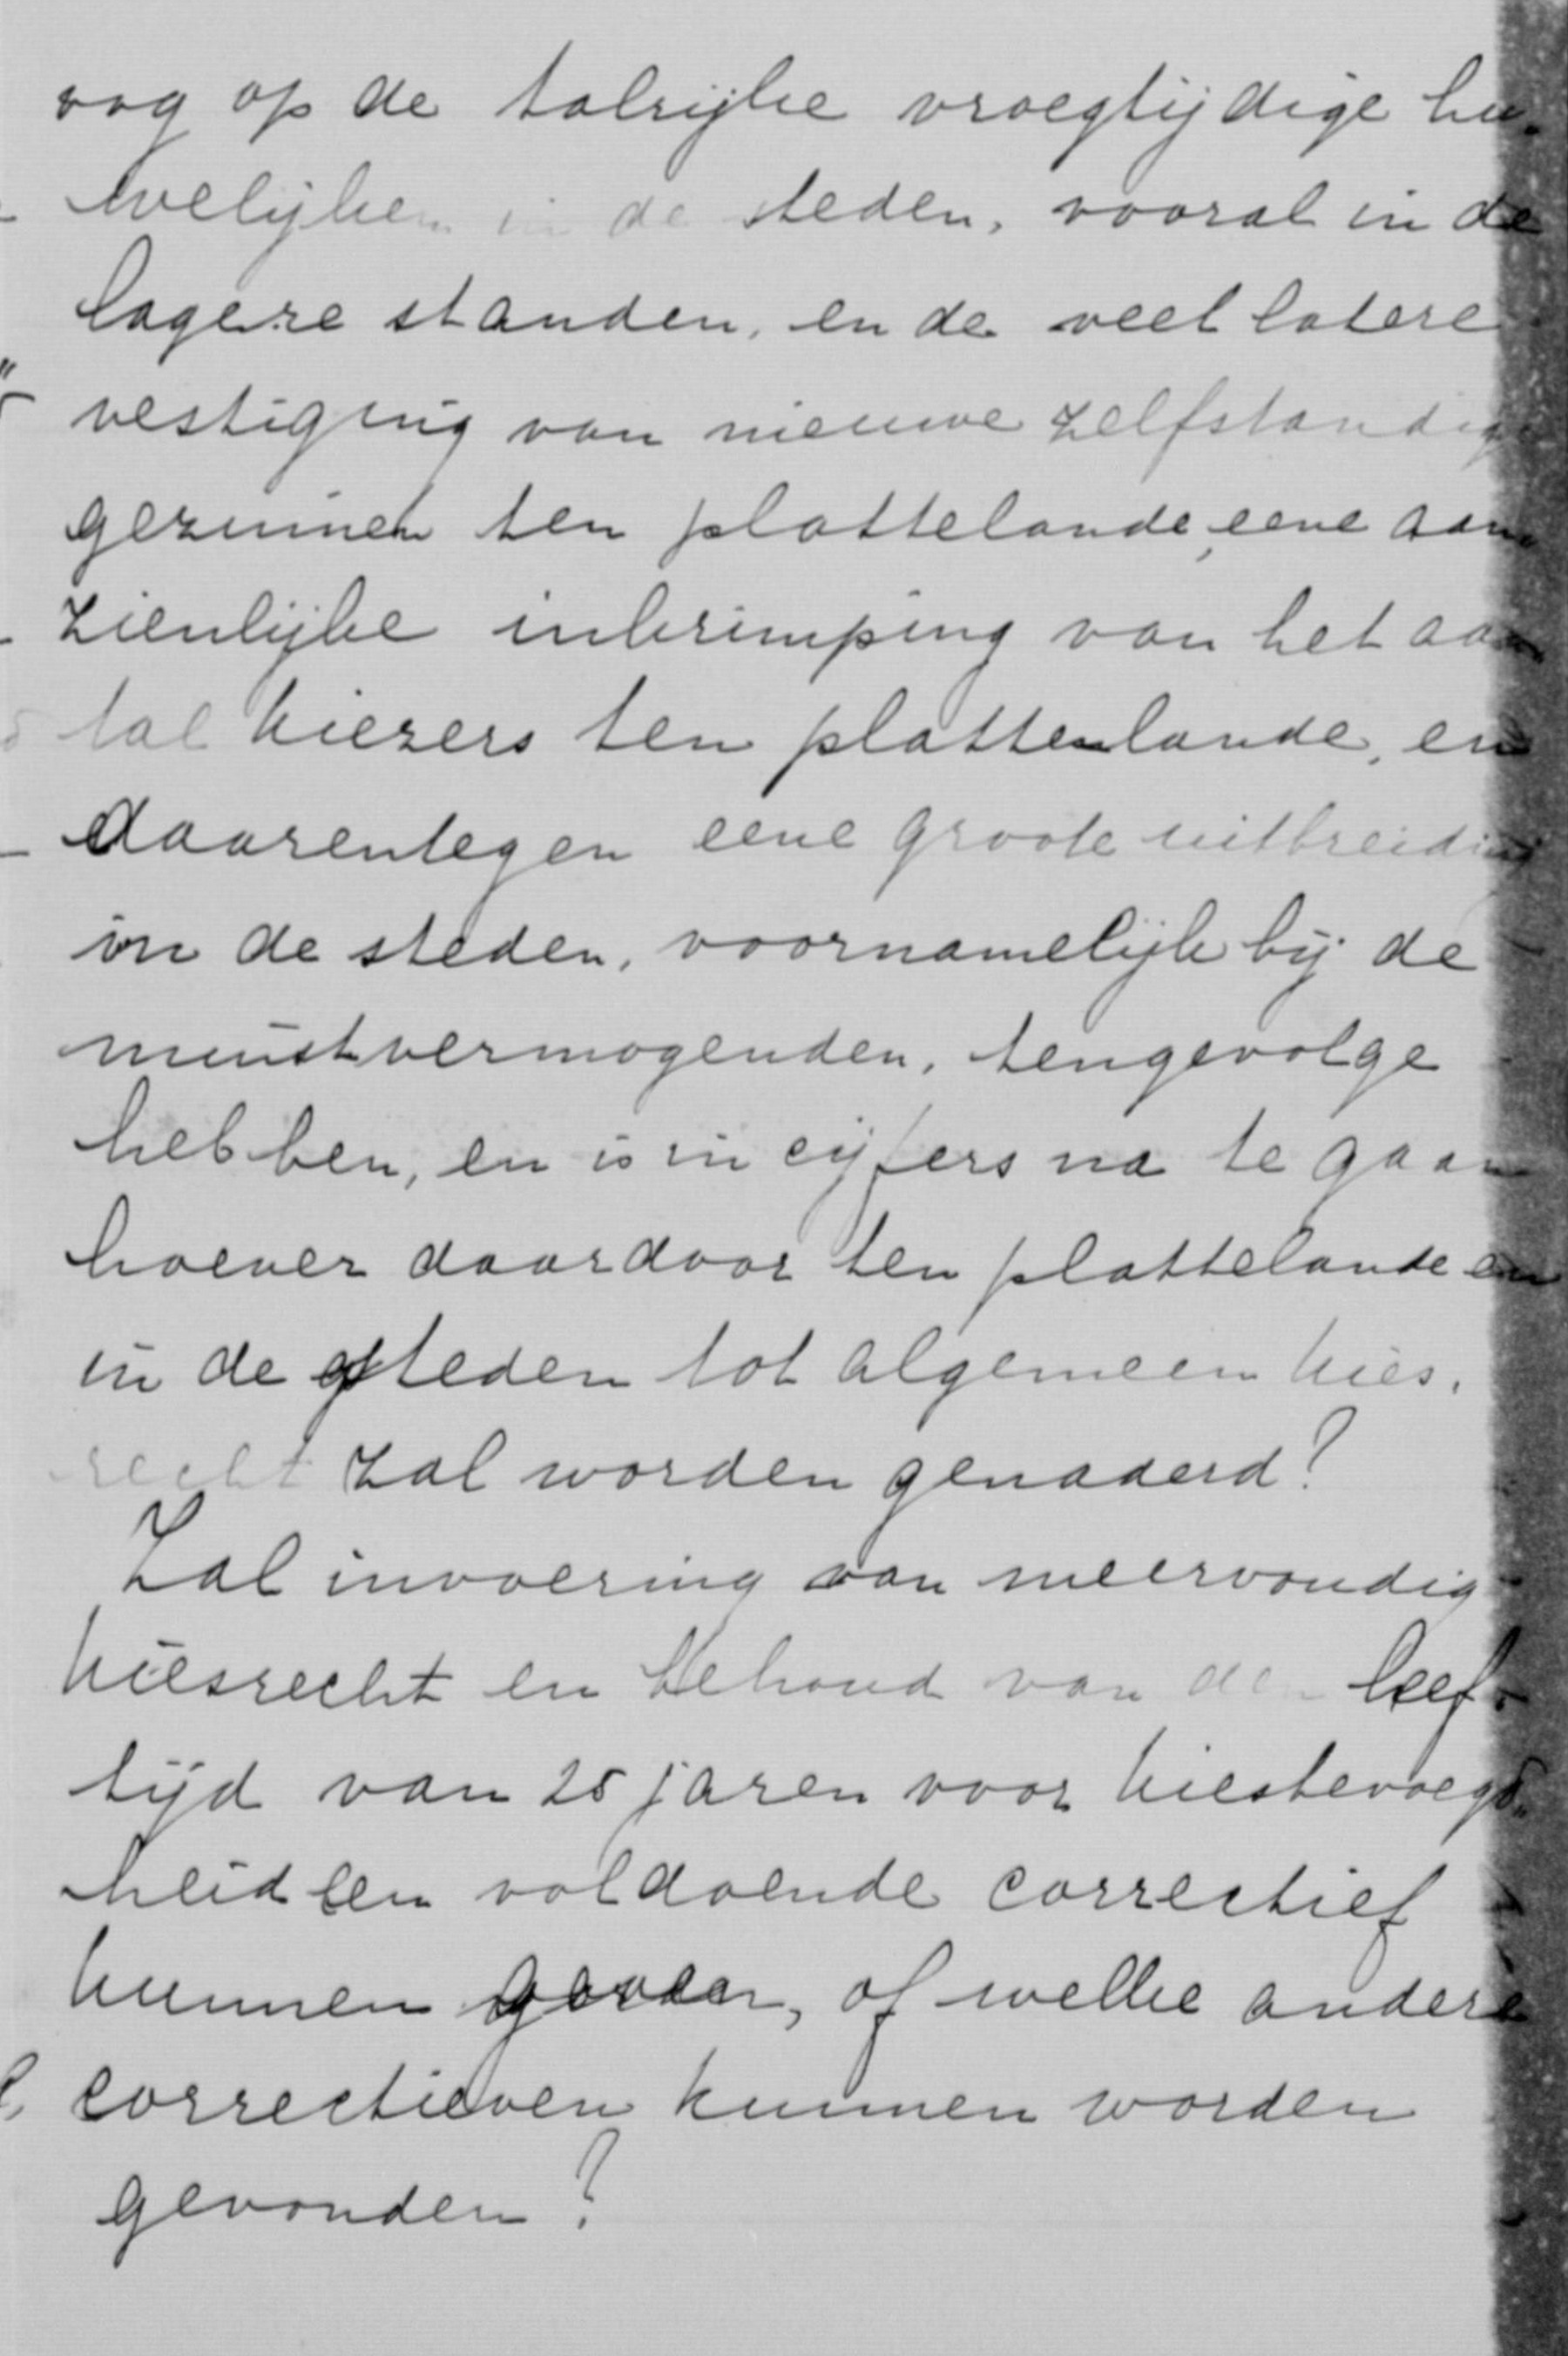 oog op de talrijke vroegtijdige hu-
welijken in de steden, vooral in de
lagere standen, en de veel latere
vestiging van nieuwe zelfstandige
gezinnen ten plattelande, eene aan-
zienlijke inkrimping van het aan-
tal kiezers ten plattenlande, en
daarentegen eene groote uitbreiding
in de steden, voornamelijk bij de
minstvermogenden, tengevolge
hebben, en is in cijfers na te gaan
hoever daardoor ten plattelande en
in de steden tot algemeen kies-
recht zal worden genaderd?
Zal invoering van meervoudig
kiesrecht en behoud van den leef-
tijd van 25 jaren voor kiesbevoegd-
heid een voldoende correctief
kunnen geven, of welke andere
correctieven kunnen worden
gevonden?